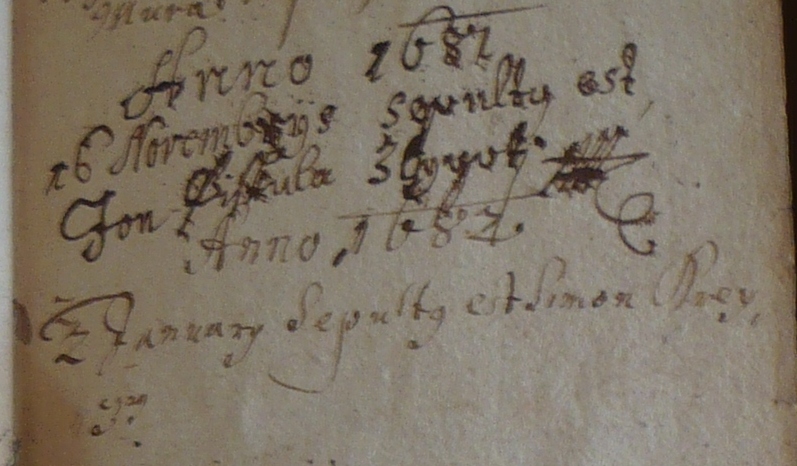 Anno 1682
16 Novembrys sepultq est
Jon Biskuba
Anno 1682.
2 January Sepultq est Simon Krey.